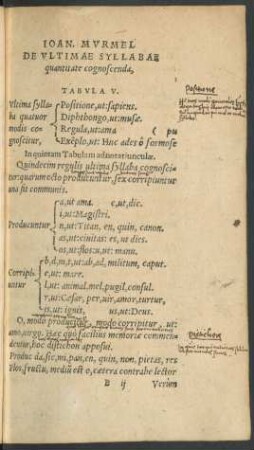 IOAN. MVRMEL
DE VLTIMAE SYLLABAE
quantitate cognoscenda,
TABVLA. V.
Vltima sylla-
ba quatuor
modis co-
gnoscitur,
Positione, ut: sapiens.
Diphthongo, ut: musæ.
Regula, ut: ama
Exẽplo, ut: Huc ades ô formose
In quintam Tabulam adnotatiunculæ.
Quindecim regulis ultima syllaba cognosci-
tur: quarum octo producuntur, sex corripiuntur
una fit communis.
Producuntur
a, ut ama. e, ut, die.
i, ut: Magistri.
n, ut: Titan, en, quin, canon.
as, ut: ciuitas: es, ut dies.
os, ut: flos: u, ut: manu.
Corripi-
untur
b, d, m, t, ut: ab, ad, militum, caput.
e, ut: mare.
l, ut: animal, mel, pugil, consul.
r, ut: Cæsar, per, uir, amor, turtur,
is, ut: ignis, us, ut: Deus.
O, modo producitur, modo corripitur, ut:
amo, uirgo. Hæc quo facilius memoriæ commen-
dentur, hoc distichon apposui.
Produc da, fic, mi, pan, en, quin, non, pietas, res
Flos, fructu, mediũ est o, cætera contrahe lector
B ij Verum